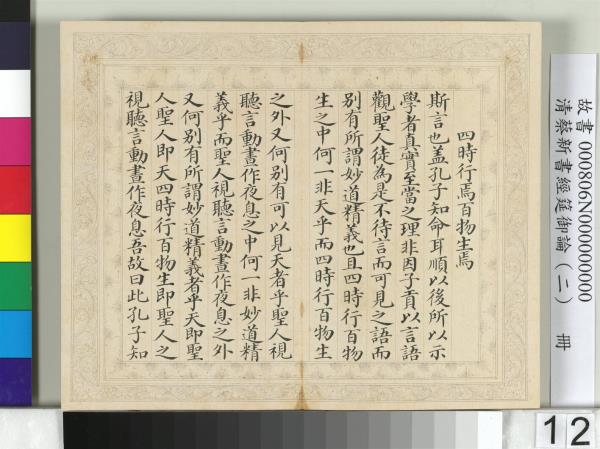 四時行焉百物生焉
斯言也蓋孔子知命耳順以後所以示
學者真實至當之理非因子貢以言語
觀聖人徒為是不待言而可見之語而
別有所謂妙道精義也且四時行百物
生之中何一非天乎而四時行百物生
之外又何別有可以見天者乎聖人視
聽言動晝作夜息之中何一非妙道精
義乎而聖人視聽言動晝作夜息之外
又何別有所謂妙道精義者乎天即聖
人聖人即天四時行百物生即聖人之
視聽言動晝作夜息吾故曰此孔子知
故書 000806N000000000
清蔡新書經筵御論(二) 冊
12